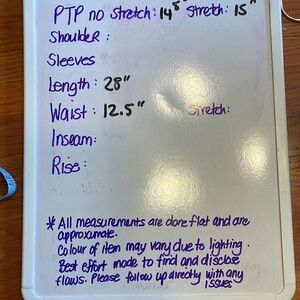 PTP no Stretch: 14.5" Stretch: 15"
Shoulder :
Sleeves
Length : 28"
Waist : 12.5" Stretch:
Inseam:
Rise:
* All measurements are done flat and are
approximate.
Colour of item may vary due to lighting.
Best effort made to find and disclose
flaws. Please follow up directly with any
issues